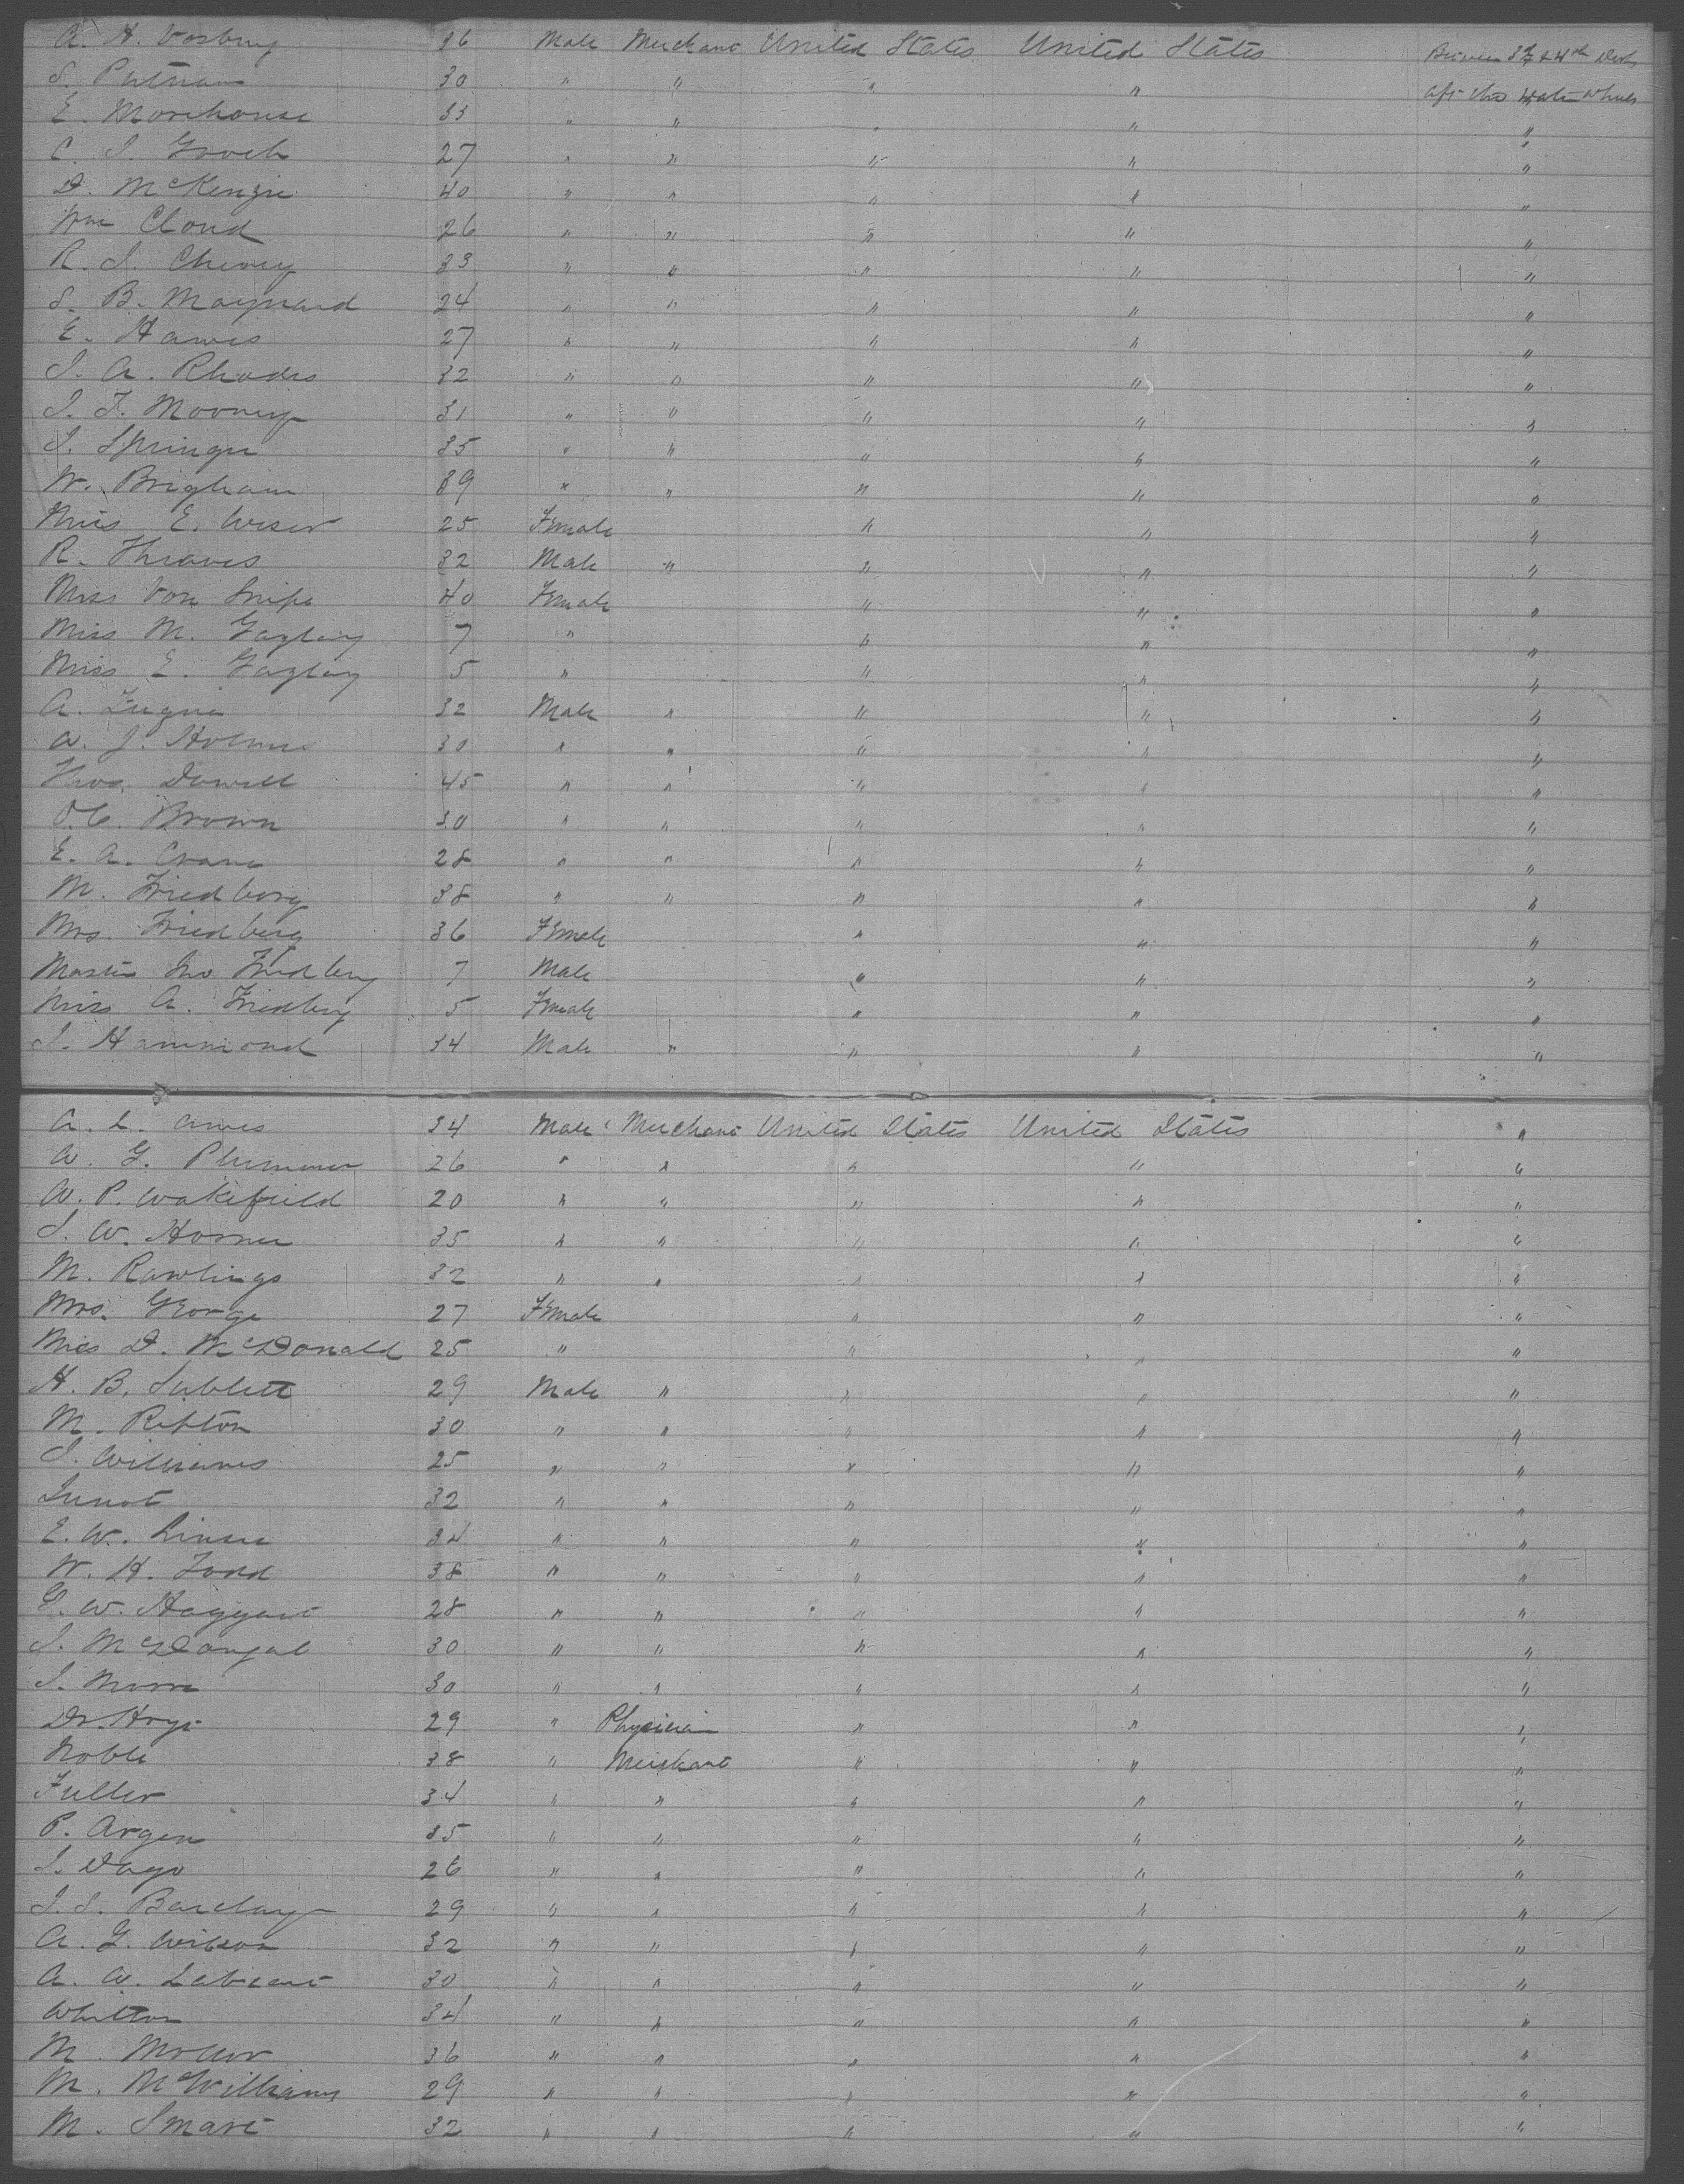 A. H. Vosburg 26 Male Merchant United States United States Between 3rd & 4th Decks
S. Putnam 30 " " " " aft the Water Wheels
E. Morehouse 33 " " " " "
C. S. Gooch 27 " " " " "
D. McKenzie 40 " " " " "
Wm Cloud 26 " " " " "
R. J. Cheney 33 " " " " "
S. B. Maynard 24 " " " " "
E. Hawes 27 " " " " "
J. A. Rhodes 32 " " " " "
J. F. Mooney 31 " " " " "
J. Springer 35 " " " " "
W. Brigham 39 " " " " "
Miss E. Weser 25 Female " " "
R. Thraves 32 Male " " " "
Miss Von Snipe 40 Female " " "
Miss M. Gazlay 7 " " " "
Miss E. Gazlay 5 " " " "
A. 32 Male " " " "
W. J. Holmes 30 " " " " "
Thos. Dowell 45 " " " " "
O. C. Brown 30 " " " " "
E. A. Crane 28 " " " " "
M. Friedberg 38 " " " " "
Mrs. Friedberg 36 Female " " "
Master Jno Friedberg 7 Male " " "
Miss A. Friedberg 5 Female " " "
J. Hammond 34 Male " " " "
A. L. Ames 34 Male Merchant United States United States "
W. G. Plummer 26 " " " " "
W. P. Wakefield 20 " " " " "
J. W. Horner 35 " " " " "
M. Rawlings 32 " " " " "
Mrs. George 27 Female " " "
Miss D. McDonald 25 " " " "
H. B. Sublett 29 Male " " " "
M. Ripton 30 " " " " "
J. Williams 25 " " " " "
Junot 32 " " " " "
E. W. 34 " " " " "
W. H. Todd 38 " " " " "
G. W. Haggart 28 " " " " "
J. McDougal 30 " " " " "
J. 30 " " " " "
Dr. Hoge 29 " Physician " " "
Noble 38 " Merchant " " "
Fuller 34 " " " " "
P. Argen 35 " " " " "
J. Dago 26 " " " " "
J. S. Barclay 29 " " " " "
A. G. Wilson 32 " " " " "
A. W. 30 " " " " "
Whitton 34 " " " " "
M. 36 " " " " "
M. McWilliams 29 " " " " "
M. Smart 32 " " " " "